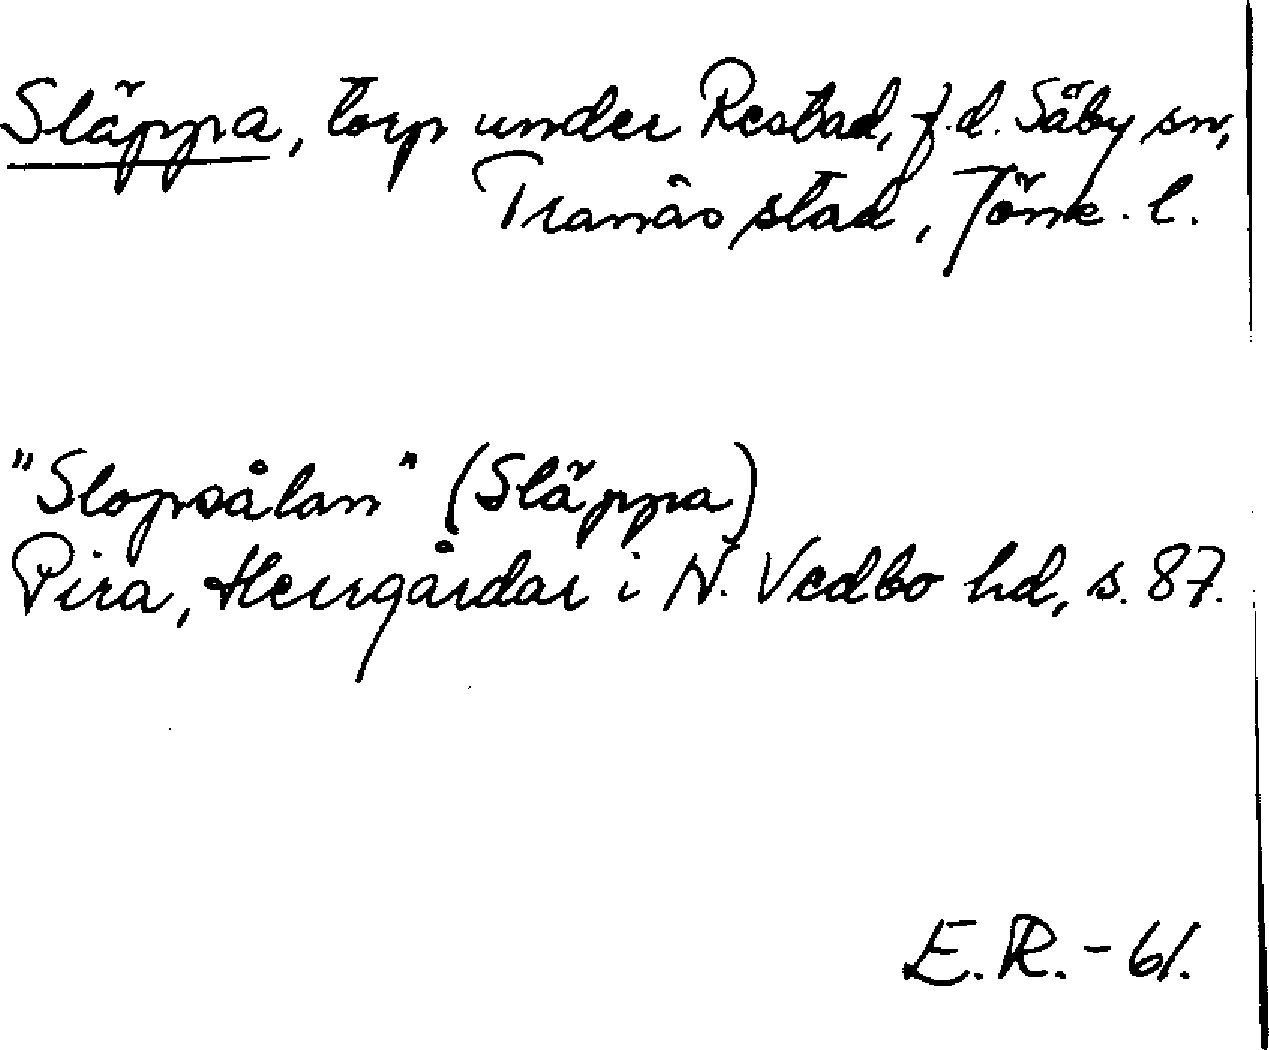 Släppa, torp under Restad, f.d. Säby sn,
Tranås stad, Jönk. l.
"Slopsålan" (Släppa)
Pira, Herrgårdar i N. Vedbo hd, s. 87.
E.R. - 61.